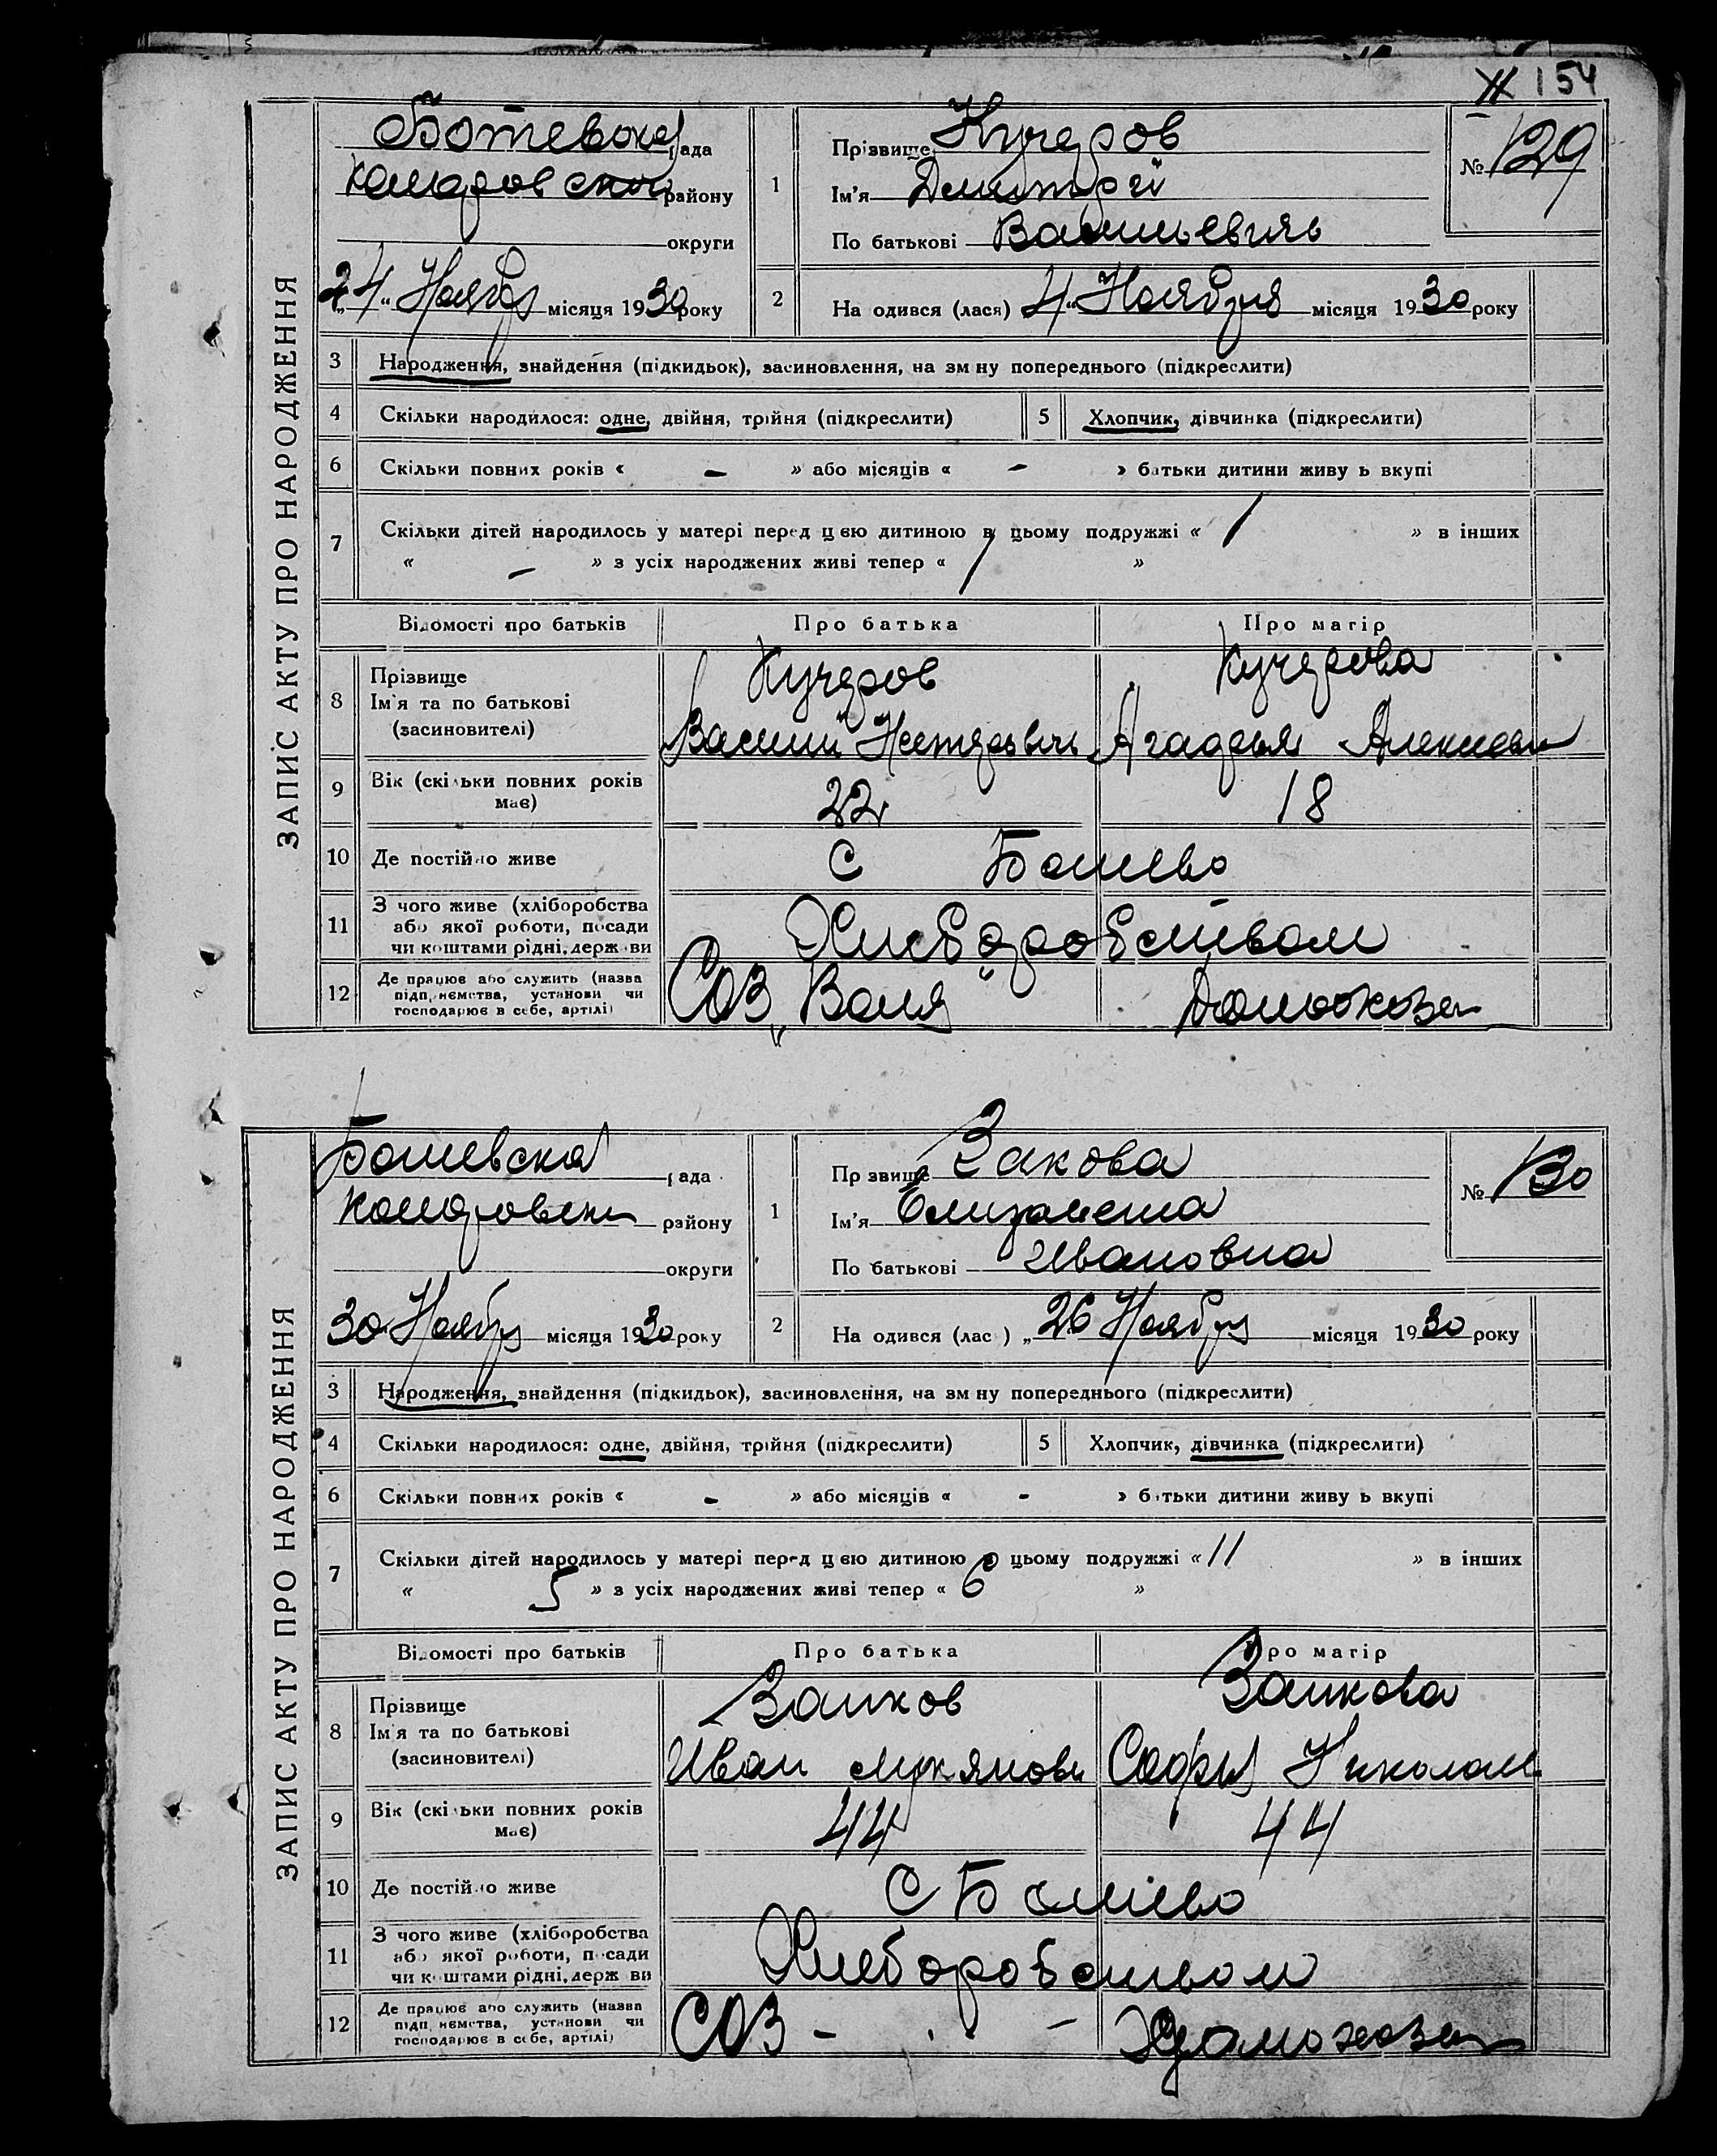 154
ЗАПИС АКТУ ПРО НАРОДЖЕННЯ
Ботевска рада
района
округи
24 Ноября місяця 1930 року
1
Прізвище Кучеров
Ім'я Дмитрой
По батькові Васильевичь
№ 129
2
На одився (лася) „4“ Ноября місяця 1930 року
3 Народження, знайдення (підкидьок), засиновлення, на зм ну попереднього (підкреслити)
4 Скільки народилося: одне, двійня, трійня (підкреслити) 5 Хлопчик, дівчинка (підкреслити)
6 Скільки повних років « - » або місяців « - » батьки дитини живу ь вкупі
7 Скільки дітей народилось у матері перед цєю дитиною в цьому подружжі « 1 » в інших
« - » з усіх народжених живі тепер « 1 »
Відомості про батьків Про батька Про матір
8 Прізвище Кучеров Кучерова
Ім'я та по батькові
(засиновителі) Василий
9 Вік (скільки повних років має) 22 18
10 Де постійно живе С Ботево
11 З чого живе (хліборобства
або якої роботи, посади
чи коштами рідні, держ ви Хлеборобством
12 Де працює або служить (назва
підприємства, установи чи
господарює в себе, артілі) СОЗ „Воля“ Домохозя
ЗАПИС АКТУ ПРО НАРОДЖЕННЯ
Ботевска рада
району
округи
30 Ноября місяця 1930 року
1
Пр звище Закова
Ім'я Елизавета
По батькові Ивановна
№ 130
2
На одився (лас ) „26 Ноября місяця 1930 року
3 Народження, знайдення (підкидьок), засиновлення, на зм ну попереднього (підкреслити)
4 Скільки народилося: одне, двійня, трійня (підкреслити) 5 Хлопчик, дівчинка (підкреслити)
6 Скільки повних років « - » або місяців « - » батьки дитини живу ь вкупі
7 Скільки дітей народилось у матері перед цєю дитиною в цьому подружжі « 11 » в інших
« 5 » з усіх народжених живі тепер « 6 »
Відомості про батьків Про батька Про матір
8 Прізвище Заиков Заикова
Ім'я та по батькові
(засиновителі) Иван Лукянови Софья Николаев
9 Вік (скільки повних років має) 44 44
10 Де постійно живе С Ботево
11 З чого живе (хліборобства
або якої роботи, посади
чи коштами рідні, держ ви Хлеборобством
12 Де працює або служить (назва
підприємства, установи чи
господарює в себе, артілі) СОЗ - - Домохозя